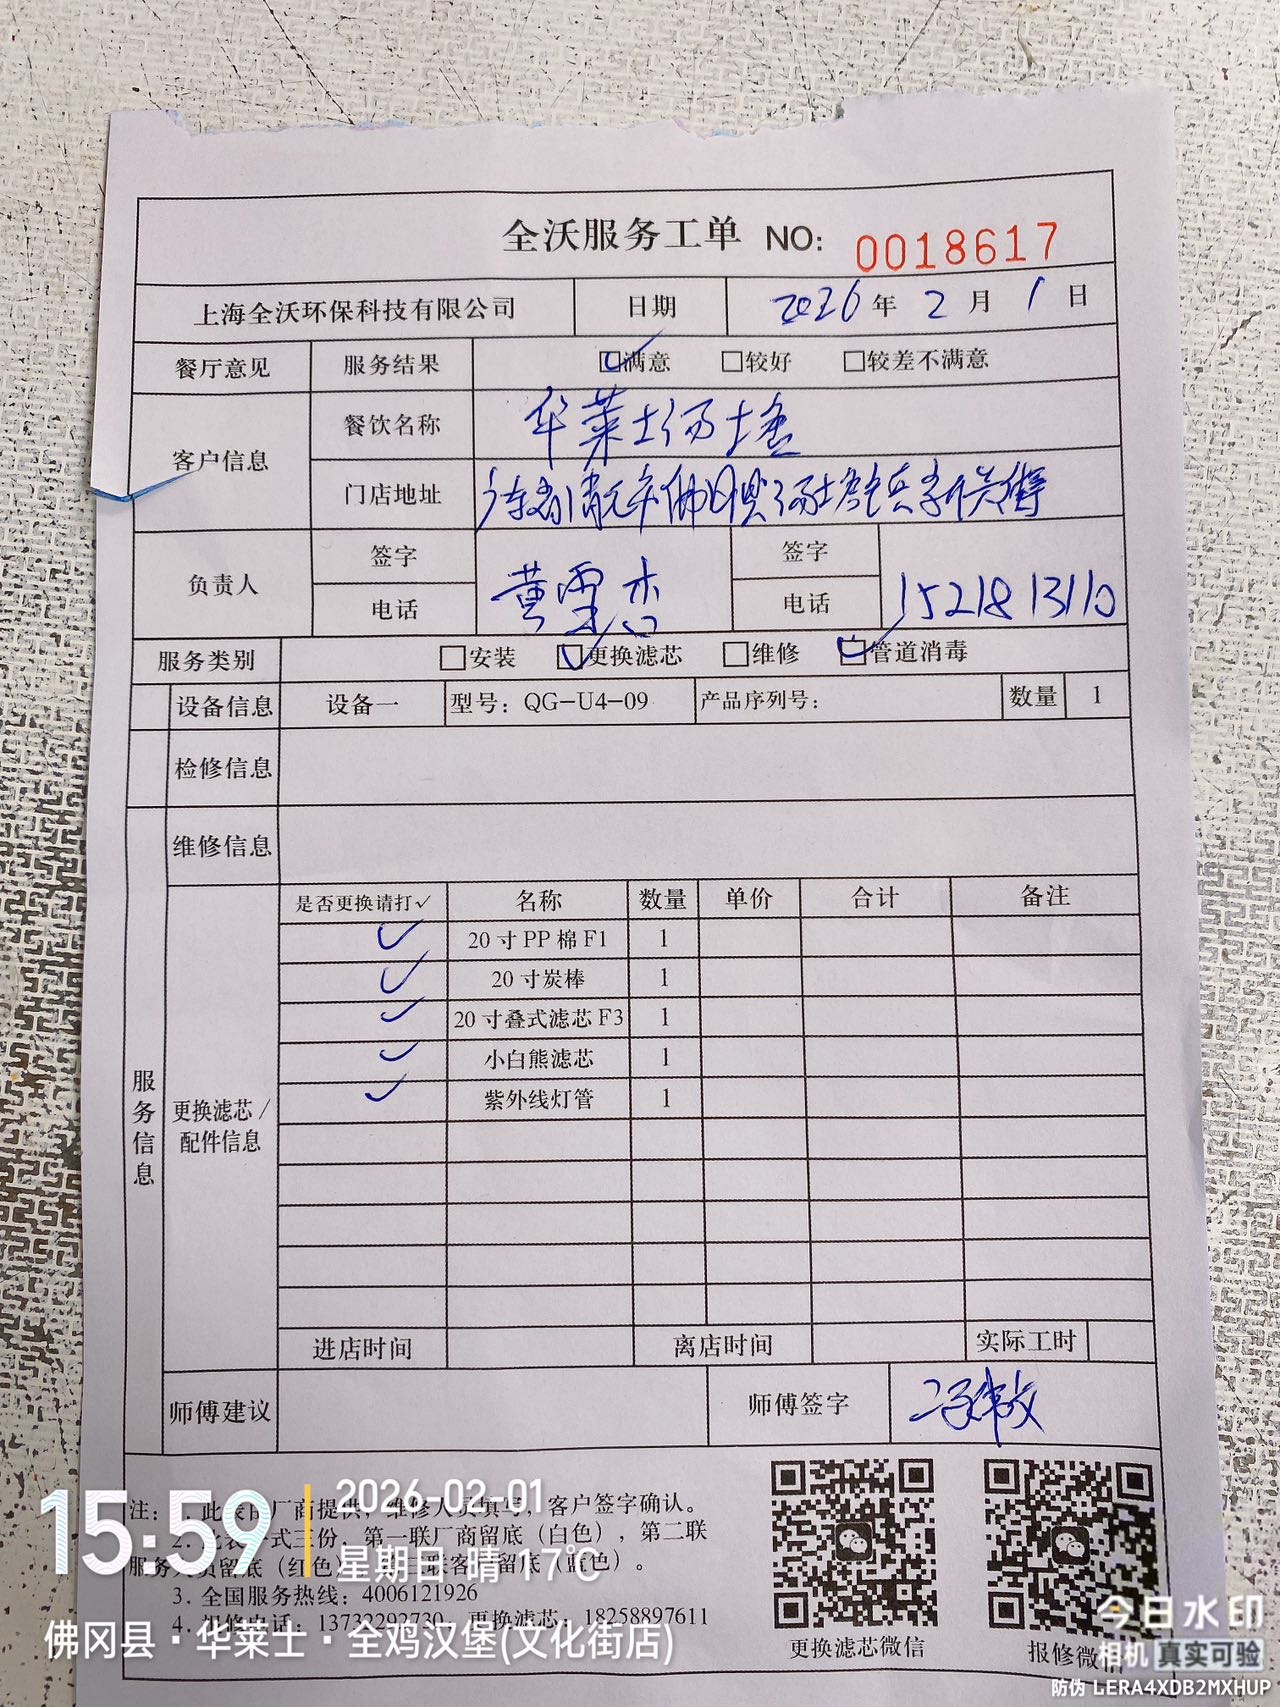 全沃服务工单 NO: 0018617
上海全沃环保科技有限公司 日期 2026年 2月 1日
餐厅意见 服务结果 ☑满意 □较好 □较差不满意
客户信息 餐饮名称 华莱士汤塘
门店地址 广东省清远市佛冈县汤塘
负责人 签字 黄 杏 签字
电话 电话 1521813110
服务类别 □安装 ☑更换滤芯 □维修 ☑管道消毒
设备信息 设备一 型号：QG-U4-09 产品序列号： 数量 1
检修信息
维修信息
服务信息
更换滤芯/配件信息
是否更换请打✓ 名称 数量 单价 合计 备注
✓ 20寸PP棉F1 1
✓ 20寸炭棒 1
✓ 20寸叠式滤芯F3 1
✓ 小白熊滤芯 1
✓ 紫外线灯管 1
进店时间 离店时间 实际工时
师傅建议 师傅签字 冯伟
注：1. 此表由厂商提供，维修人员填写，客户签字确认。
2. 此表一式三份，第一联厂商留底（白色），第二联
服务人员留底（红色），第三联客户留底（蓝色）。
3. 全国服务热线：4006121926
4. 报修电话：13732292730 更换滤芯：18258897611
更换滤芯微信 报修微信
15:59 2026-02-01
星期日 晴 17℃
佛冈县·华莱士·全鸡汉堡(文化街店)
今日水印
相机 真实可验
防伪 LERA4XDB2MXHUP